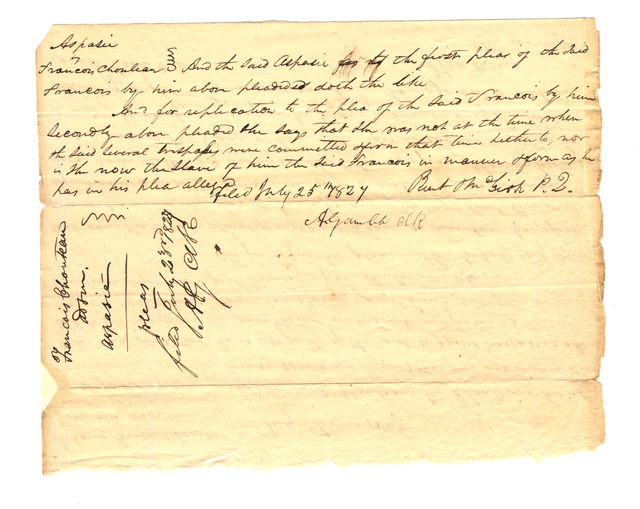 Aspasie
Francois Chouteau And the said Aspasie as to the first plea of the said
Francois by him above pleaded doth the like
And for replication to the plea of the said Francois by him
Secondly above pleaded she says that she was not at the time when
the said several trespasses were committed & from that time hitherto, nor
is she now the slave of him the said Francois in manner & form as he
has in his plea alleged
Filed July 25th 1827
A Gamble clk
Francois Chouteau
adsm.
aspasie
pleas
filed July 23rd 1827
AG clk